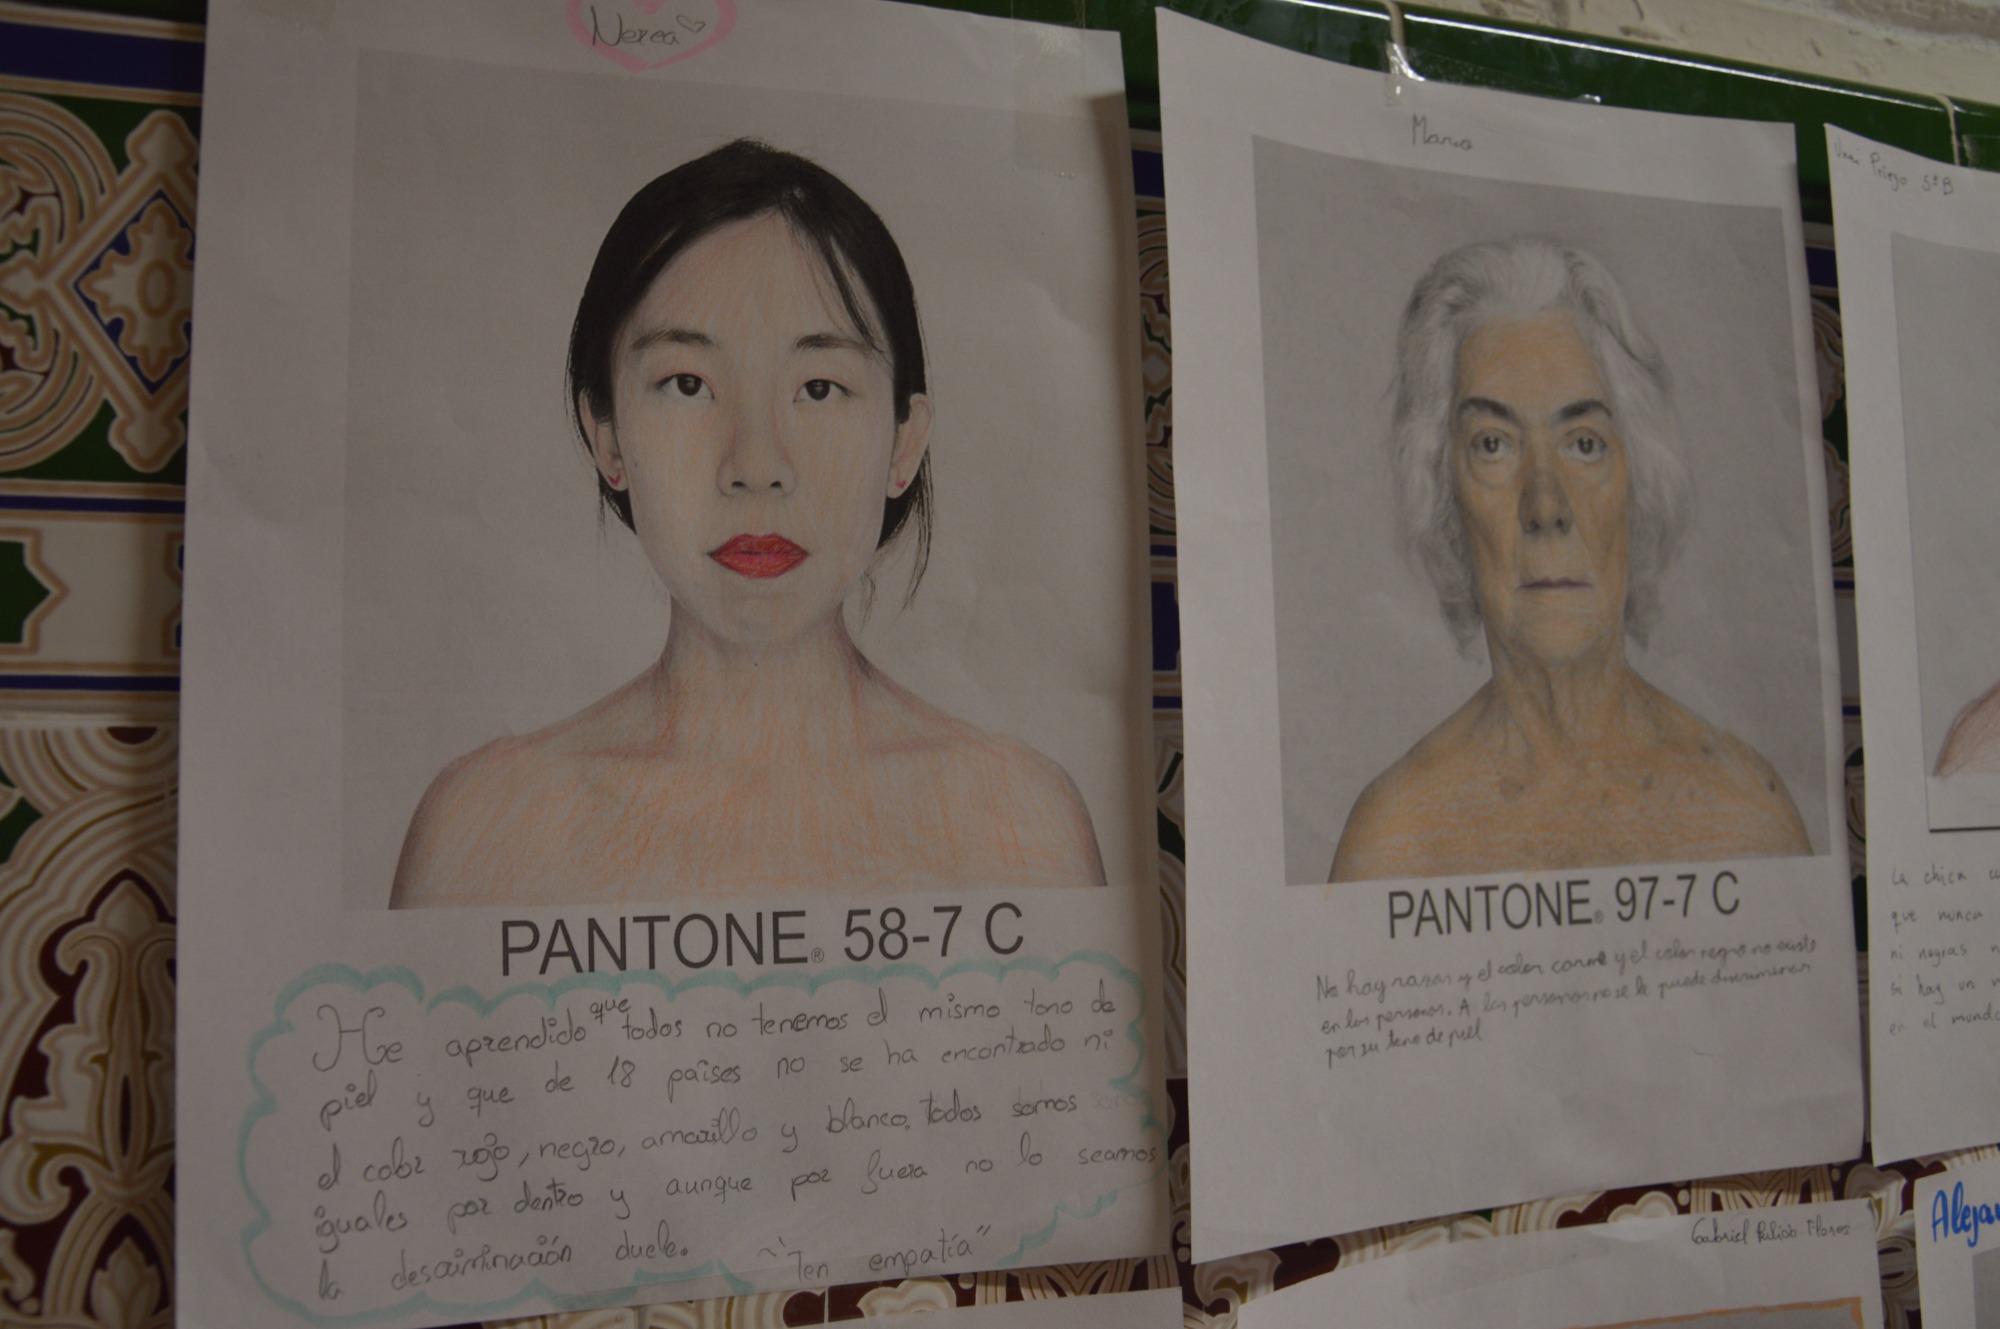 Nerea
PANTONE® 58-7 C
He aprendido que todos no tenemos el mismo tono de
piel y que de 18 países no se ha encontrado ni
el color rojo, negro, amarillo y blanco. todos somos
iguales por dentro y aunque por fuera no lo seamos
la descriminación duele. "Ten empatía"
Marco
PANTONE® 97-7 C
No hay razas y el color carne y el color negro no existe
en las personas. A las personas no se le puede discriminar
por su tono de piel
Unai Priego 5ºB
La chica
que nunca
ni negras
si hay un
en el mundo
Gabriel Flores